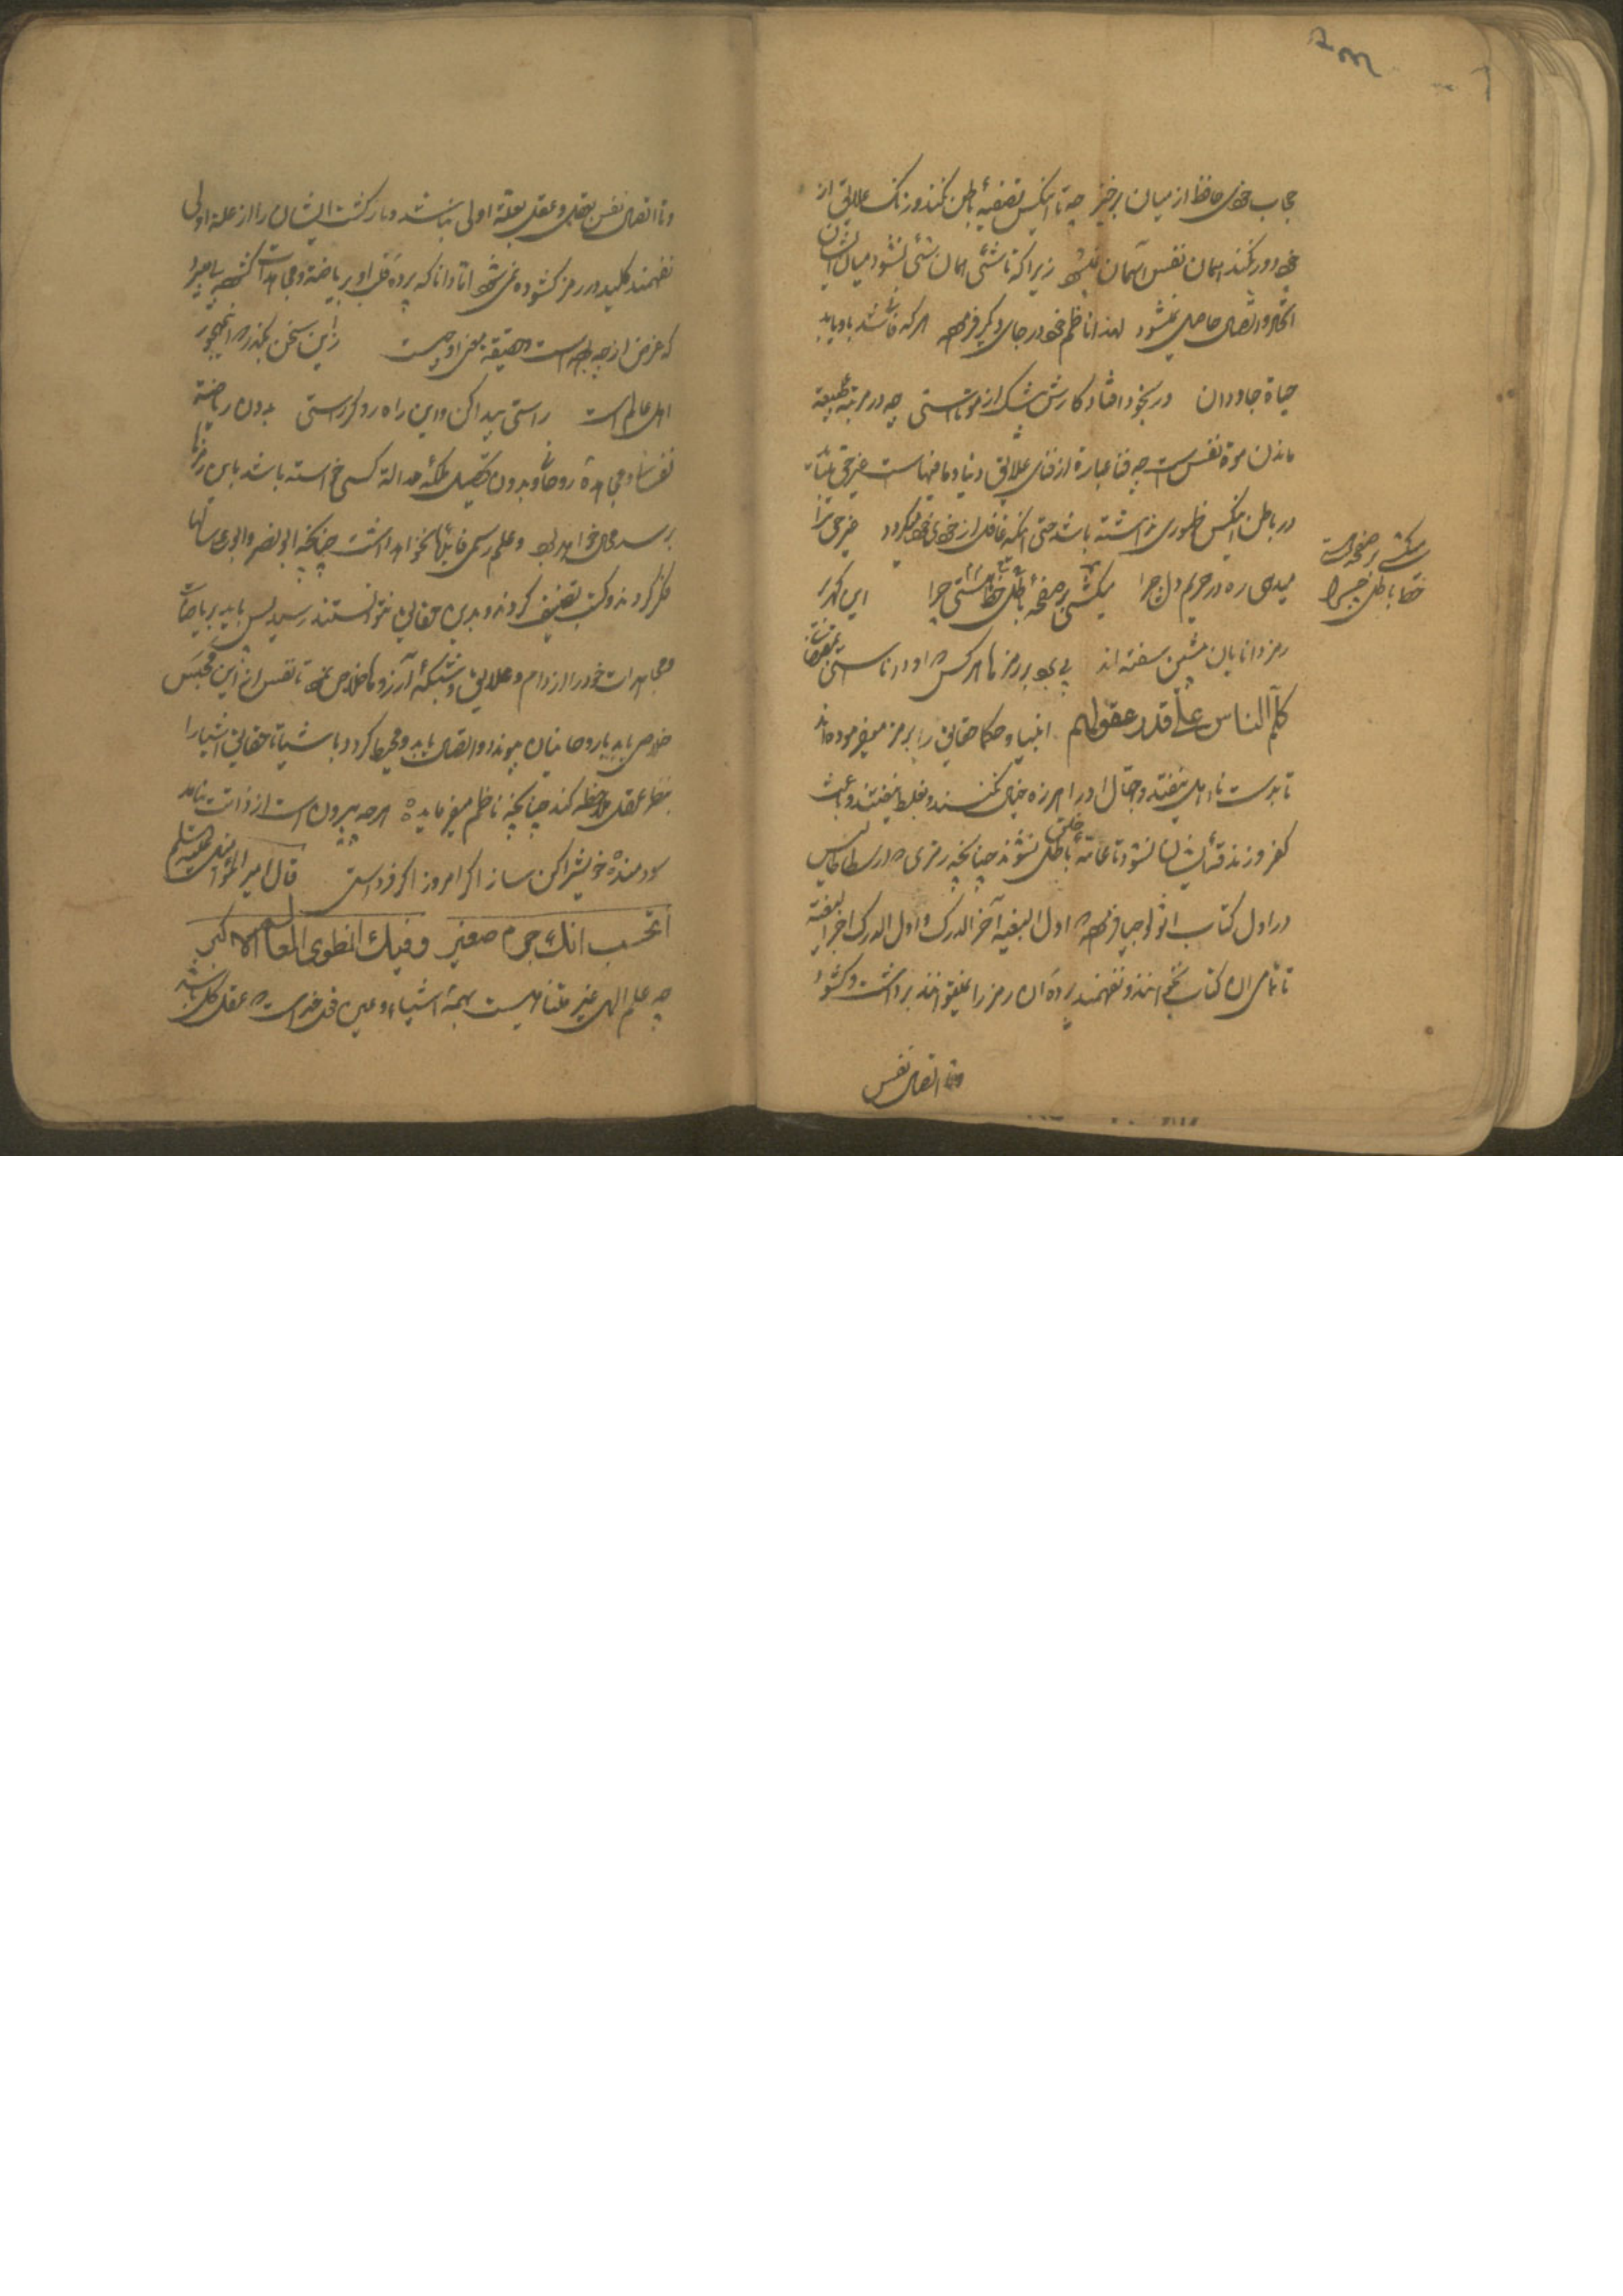 حجاب خودی حافظ از میان برخیز چه تا انکس تصفیهٔ باطن نکند و زنک علایق از
خود دور نکند همان نفس آسمان نشود زیرا که تا شئی همان شئی نشود میان ایشان
اتحاد و اتصال حاصل نمیشود لهذا ناظم خود در جای دیکر فرموده هر که فانی شد باو یابد
حیاة جاودان ور بخود افتاد کارش بیشک از موتاستی چه در مرتبه طبیعة
ماندن موة نفس است چه فنا عبارة از فنای علایق دنیا و ما فیهاست غیر حق نباید
در باطن انکس ظهوری نداشته باشد حتی انکه غافل از خودی خود میکردد غیر حق را
میدهی ره در حریم دل چرا میکشی بر صفحهٔ باطل خط هستی چرا این کهر در
رمز دانایان پیشین سفته اند پی برد بر رمزها هر کس که او داناستی بمقتضای
کلّم الناس علی قدر عقولهم انبیا و حکما حقایق را برمز میفرموده‌اند
تا بدست نا اهل نیفتد و جهّال او را هرزه خیال نکنند و بغلط نیفتند و باعث
کفر و زندقهٔ ایشان نشود تا عامهٔ خلق باطل نشوند چنانچه رمزی که ارسطاطالیس
در اول کتاب اثولوجیا فرموده که اول البغیه آخر الدرک و اول الدرک اخر البغیة
تا تمامی ان کتاب نخوانند و نفهمند پردهٔ ان رمز را نمیتوانند برداشت و کشود
و تا اتصال نفس
میکشی بر صفحه هستی
خط باطل چرا
و تا اتصال نفس بعقل و عقل بعلة اولی نباشد و بازکشت ایشان را از علة اولی
نفهمند کلید در رمز کشوده نمیشود اما دانا که پردهٔ دل او بریاضة و مجاهدات کشوده پی میبرد
که غرض از چه بوده است و حقیقة معنی او چیست زاین سخن بکذر که این مهجور
اهل عالم است راستی پیدا کن و این راه رو کر راستی بدون ریاضة
نفسانی و مجاهدهٔ روحانی و بدون تحصیل ملکهٔ عدالة کسی خواسته باشد باین رمزها
برسد محال خواهد بود و علم رسمی فایدها نخواهد داشت چنانچه ابو نصر و ابو علی سالها
فکر کردند و کتب تصنیف کردند و بدین حقایق نتوانستند رسید پس باید بریاضات
و مجاهدات خود را از دام و علایق و شبکهٔ آرزوها خلاص نمود تا نفس از این محبس
خلاص یابد با روحانیان پیوند و اتصال یابد و محیط کردد باشیا تا حقایق اشیا را
بنظر عقل ملاحظه کند چنانچه ناظم میفرماید هر چه بیرون است از ذاتت نیاید
سودمند خویش را کن ساز اکر امروز اکر فرداستی قال امیر المؤمنین علیه السلم
اتحسب انک جرم صغیر و فیک انطوی العالم الاکبر
چه علم الهی غیر متناهیست بهمهٔ اشیاء و عین خداست که عقل کل باشد